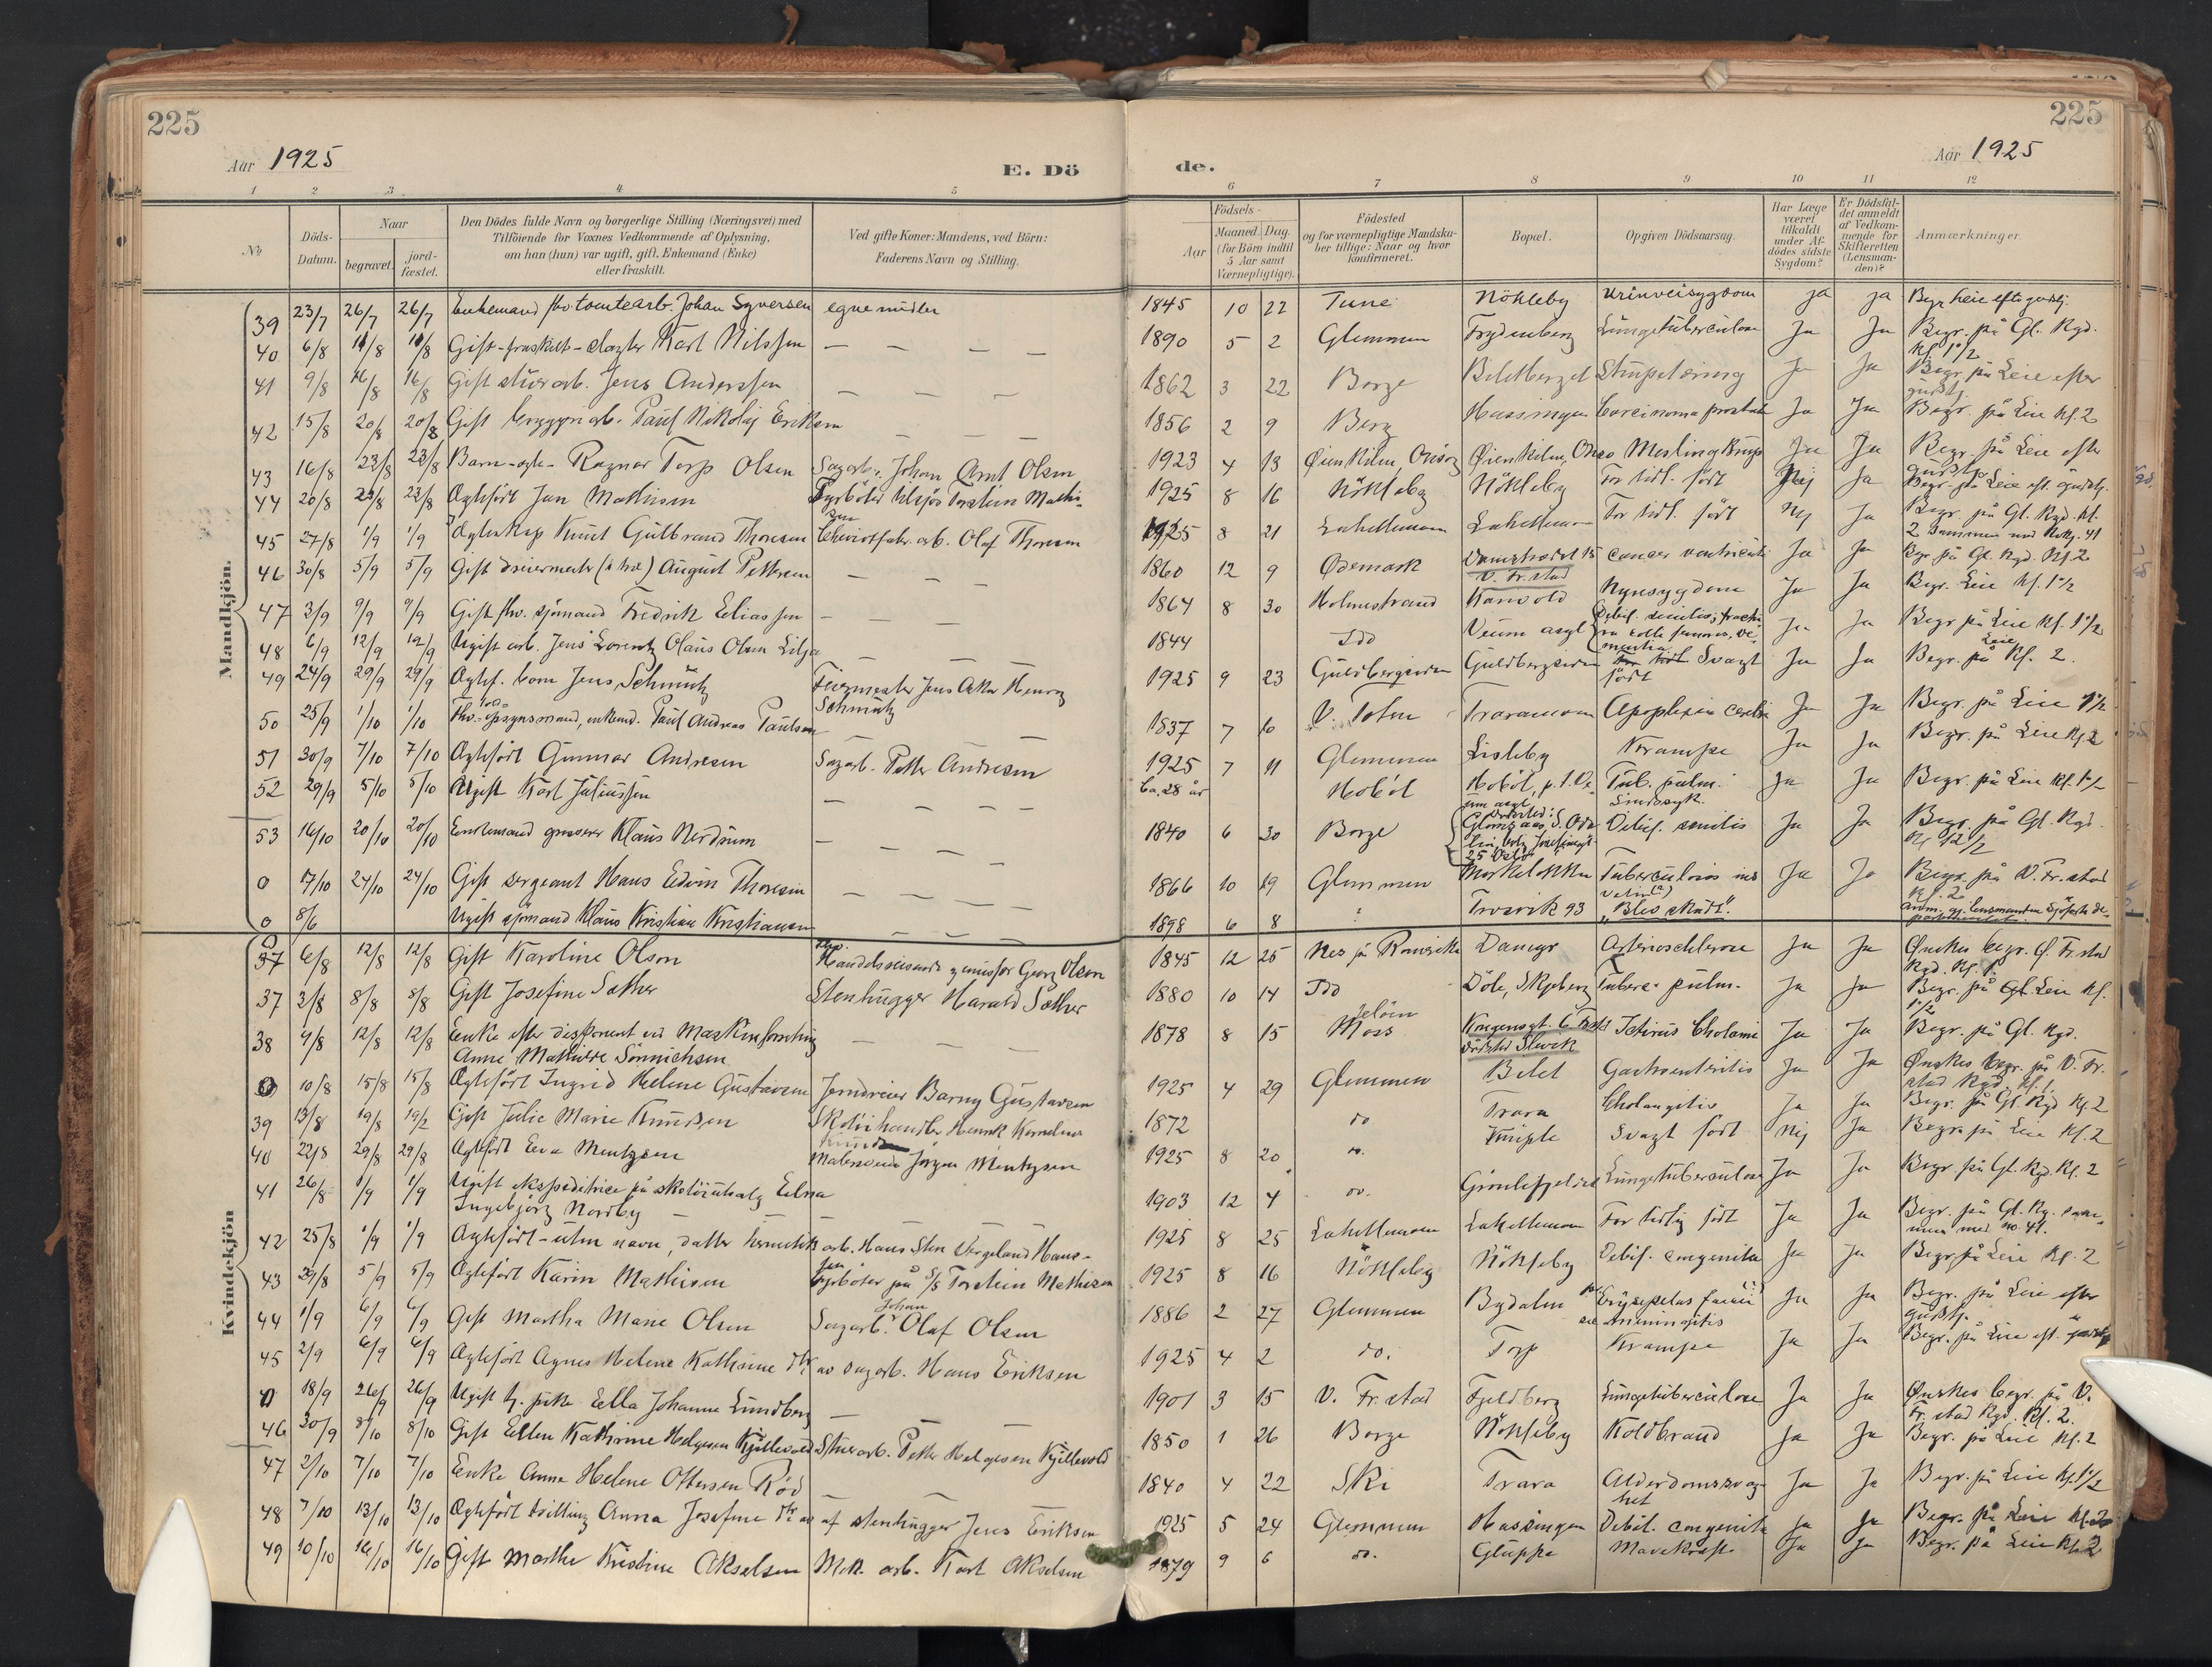 225
225
Aar 1925
E. Dö
de.
Aar 1925
1 2 3 4 5 6 7 8 9 10 11 12
No.
Döds-Datum.
Naar
begravet.
jord-fæstet.
Den Dödes fulde Navn og borgerlige Stilling (Næringsvei) med
Tilföiende for Voxnes Vedkommende af Oplysning,
om han (hun) var ugift, gift, Enkemand (Enke)
eller fraskilt.
Ved gifte Koner: Mandens, ved Börn:
Faderens Navn og Stilling.
Aar
Födsels-
Maaned. Dag.
(for Börn indtil
5 Aar samt
Værnepligtige).
Födested
og for værnepligtige Mandska-
ber tillige: Naar og hvor
konfirmeret.
Bopæl.
Opgiven Dödsaarsag.
Har Læge
været
tilkaldt
under Af-
dödes sidste
Sygdom?
Er Dödsfal-
det anmeldt
af Vedkom-
mende for
Skifteretten
(Lensman-
den)?
Anmærkninger
Mandkjön.
39 23/7 26/7 26/7 Enkemand fhv. tomtearb. Johan Syversen egne midler 1845 10 22 Tune Nökleby Urinveisygdom ja ja Begr. Leie
40 6/8 11/8 11/8 Gift - fraskilt - slagter Karl Nilssen — — — — 1890 5 2 Glemmen Frydenberg Lungetuberculose Ja Ja Begr. på Gl. Kgd.
Kl. 1 1/2
41 9/8 16/8 16/8 Gift stuerarb. Jens Anderssen — — — — 1862 3 22 Borge Struptæring Ja Ja Begr. på Leie efter
gudstj.
42 15/8 20/8 20/8 Gift bryggeriarb. Paul Nikolaj Eriksen — — — 1856 2 9 Berg Hassingen Carcinoma prostata Ja Ja Begr. på Leie kl. 2
43 16/8 23/8 23/8 Barn - egte - Ragnar Torp Olsen Sagarb. Johan Arnt Olsen 1923 4 13 Øienkilen, Onsøy Øienkilen, Onsø Meslingkrup Ja Ja Begr. på Leie efter
gudstj.
44 20/8 23/8 23/8 Ægtefödt Jan Mathisen Fyrböter tilsjös Torstein Mathi-
sen 1925 8 16 Nökleby Nökleby For tidl. født Nej Ja Begr. på Leie eft. gudstj.
45 27/8 1/9 1/9 Knut Gulbrand Thoresen Cheviotfabr. arb. Olaf Thoresen 1925 8 21 Lahellemoen Lahellemoen For tidl. født Nej Ja Begr. på Gl. Kgd. kl.
2 sammen med 41
46 30/8 5/9 5/9 Gift dreiermester (i træ) August Pettersen — — — 1860 12 9 Ødemark 15
V. Fr.stad cancer ventriculi Ja Ja Begr. på Gl. Kgd. Kl. 2
47 3/9 9/9 9/9 Gift fhv. sjömand Fredrik Eliassen — — — 1864 8 30 Holmestrand Nyresygdom Ja Ja Begr. Leie kl. 1 1/2
48 6/9 12/9 12/9 Ugift arb. Jens Lorentz Olaus Olsen Lilja — — — 1844 Ido Veum asyl Debil. senilis; fractu-
ra colli femoris, de-
mentia Ja Ja Begr. på Leie Kl. 1 1/2
49 24/9 29/9 29/9 Ægtef. barn Jens Schmütz Feiermester Jens Henry
Schmütz 1925 9 23 Guldbergsiden Guldbergsiden Svagt
født Ja Ja Begr. på Leie Kl. 2.
50 25/9 1/10 1/10 Fhv. opsynsmand, enkem. Paul Andreas Paulsen — — — 1837 7 10 V. Toten Traramoen Apoplexia cerebri Ja Ja Begr. på Leie 1 1/2
51 30/9 7/10 7/10 Ægtefödt Gunnar Andresen Sagarb. Petter Andresen 1925 7 11 Glemmen Lisleby Krampe Ja Ja Begr. på Leie Kl. 2
52 29/9 5/10 5/10 Ugift Karl Juliussen — — — — ca. 28 år Hobøl Hobøl, p. t. Ve-
um asyl Tub. pulm.
Sindssyk. Ja Ja Begr. på Leie Kl. 1 1/2
53 16/10 20/10 20/10 Enkemand grosserer Klaus Nerdrum — — — — 1840 6 30 Borge Dødssted:
25 Oslo Debil. senilis Ja Ja Begr. på Gl. Kgd.
Kl. 12 1/2
0 17/10 24/10 24/10 Gift sergeant Hans Edvin Thoresen — — — — 1866 10 19 Glemmen Mörkelokka Ja Ja Begr. på V. Fr.stad
kl. 2
0 8/6 Ugift sjömand Klaus Kristian Kristiansen — — — 1898 6 8 Trosvik 93 "Blev skudt". Anm. gj. lensmanden Sjöfarts de-
partementet.
Kvindekjön
0 6/8 12/8 12/8 Gift Karoline Olsen Handelsreisende Georg Olsen 1845 12 25 Nes på Romerike Damyr Arterioschlerose Ja Ja Ønskes begr. Ø. Fr.stad
Kgd. Kl. 1.
37 3/8 8/8 8/8 Gift Josefine Sæther Stenhugger Harald Sæther 1880 10 14 Ido Döle, Skjeberg Tuberc. pulm. Ja Ja Begr. på Leie kl.
1 1/2
38 9/8 12/8 12/8 Enke efter disponent ved Maskinforretning
Anne Mathilde Sönnichsen — — — 1878 8 15 Jelöen
Moss Kongensgt. 6
dödssted Slevik Icterus Cholæmi Ja Ja Begr. på Gl. Kgd.
0 10/8 15/8 15/8 Ægtefödt Ingrid Helene Gustavsen Jerndreier Barny Gustavsen 1925 4 29 Glemmen Bilet Gastroenteritis Ja Ja Ønskes begr. på V. Fr.
stad Kgd. Kl. 1.
39 13/8 19/8 19/8 Gift Julie Marie Knudsen Skotöihandler Henrik Kornelius
Knudsen 1872 do Trara Cholangitis Ja Ja Begr. på Gl. Kgd Kl. 2
40 22/8 29/8 29/8 Ægtefödt Eva Mentzsen Malersvend Jörgen Mentzsen 1925 8 20 do. Svagt født Nej Ja Begr. på Leie Kl. 2
41 26/8 1/9 1/9 Ugift ekspeditrice på skotöiutsalg Edna
Ingebjørg Nordby — — 1903 12 4 do. Lungetuberculose Ja Ja Begr. på Gl. Kgd. Kl. 2
42 25/8 1/9 1/9 Ægtefödt - uten navn, datter hermetikk arb. Hans Sten Vergeland Hans-
sen 1925 8 25 Lahellemoen Lahellemoen For tidlig født Ja Ja Begr. på Gl. Kg. sam-
men med no. 41.
43 29/8 5/9 5/9 Ægtefödt Karin Mathisen Fyrböter på S/S Torstein Mathisen 1925 8 16 Nökleby Nökleby Debil. congenita Ja Ja Begr. på Leie Kl. 2
44 1/9 6/9 6/9 Gift Martha Marie Olsen Sagarb. Johan Olaf Olsen 1886 2 27 Glemmen Bydalen Erysepelas faciei
meningitis Ja Ja Begr. på Leie efter
gudstj.
45 2/9 6/9 6/9 Ægtefödt Agnes Helene Kathrine Dtr. av sagarb. Hans Eriksen 1925 4 2 do. Torp Krampe Ja Ja Begr. på Leie eft. gudstj.
0 18/9 26/9 26/9 Ugift tj. pike Ella Johanne Lundberg — 1901 3 15 V. Fr.stad Fjeldberg Lungetuberculose Ja Ja Ønskes begr. på V.
Fr.stad Kgd. Kl. 2.
46 30/9 8/10 8/10 Gift Ellen Kathrine Helgesen Kjillevold Stuerarb. Petter Helgesen Kjillevold 1850 1 26 Borge Nökleby Koldbrand Ja Ja Begr. på Leie Kl. 2
47 2/10 7/10 7/10 Enke Anne Helene Ottersen Röd — 1840 4 22 Ski Trara Alderdomssvag-
het Ja Ja Begr. på Leie Kl. 1 1/2
48 7/10 13/10 13/10 Ægtefödt tvilling Anna Josefine Dtr. av af stenhugger Jens Eriksen 1925 5 24 Glemmen Hassingen Debil. congenita Ja Ja Begr. på Leie Kl. 2
49 10/10 16/10 16/10 Gift Marthe Kristine Akselsen Mek. arb. Karl Akselsen 1879 9 6 do. Gluppe Mavekræft Ja Ja Begr. på Leie Kl. 2